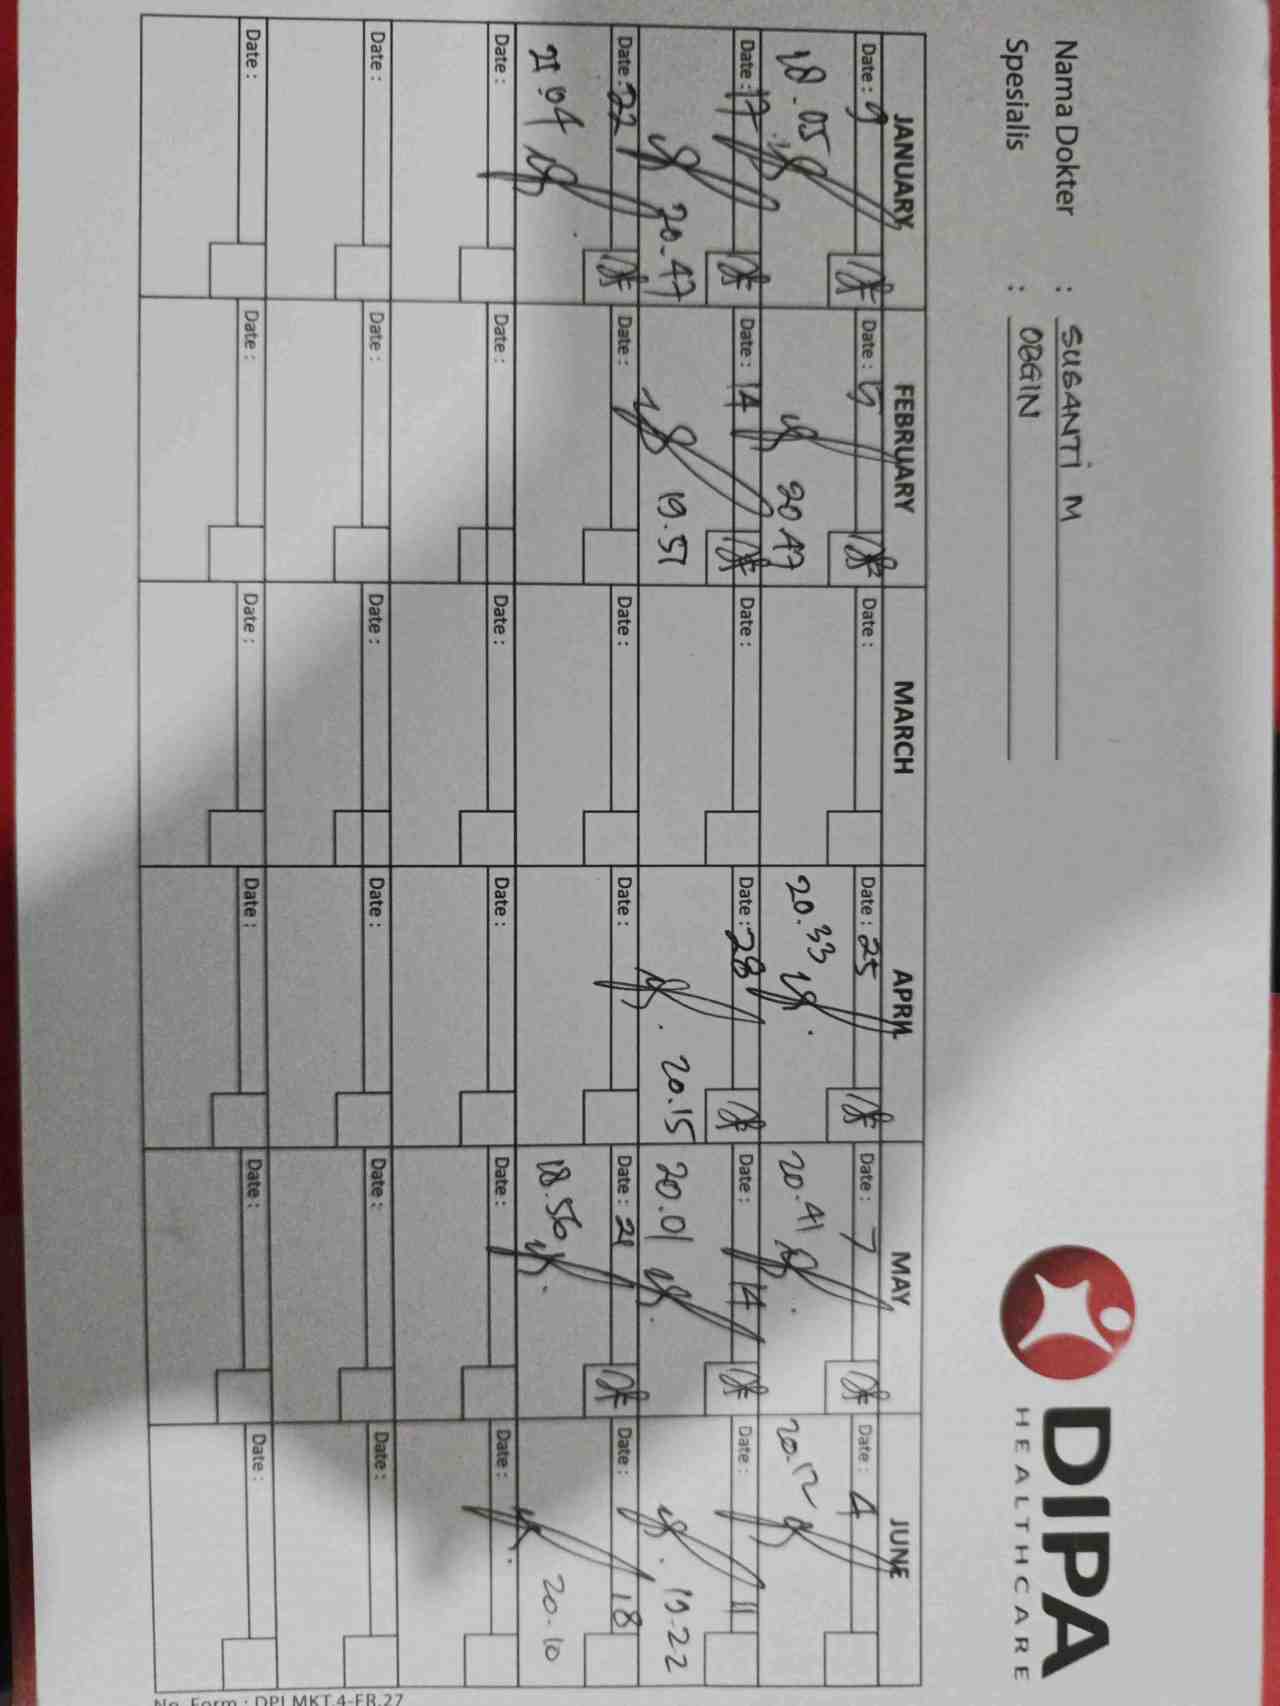 DIPA
HEALTHCARE
Nama Dokter : SUSANTI M
Spesialis : OBGIN
JANUARY FEBRUARY MARCH APRIL MAY JUNE
Date : 9 Date : 5 Date : Date : 25 Date : 7 Date : 4
18.05 20.47 20.33 20.41 20.12
Date : 17 Date : 14 Date : Date : 28 Date : 14 Date : 11
20.47 19.57 20.15 20.01 19.22
Date : 22 Date : Date : Date : Date : 21 Date : 18
21.04 18.56 20.10
Date : Date : Date : Date : Date : Date :
Date : Date : Date : Date : Date : Date :
Date : Date : Date : Date : Date : Date :
No. Form : DPI.MKT.4-FR.27